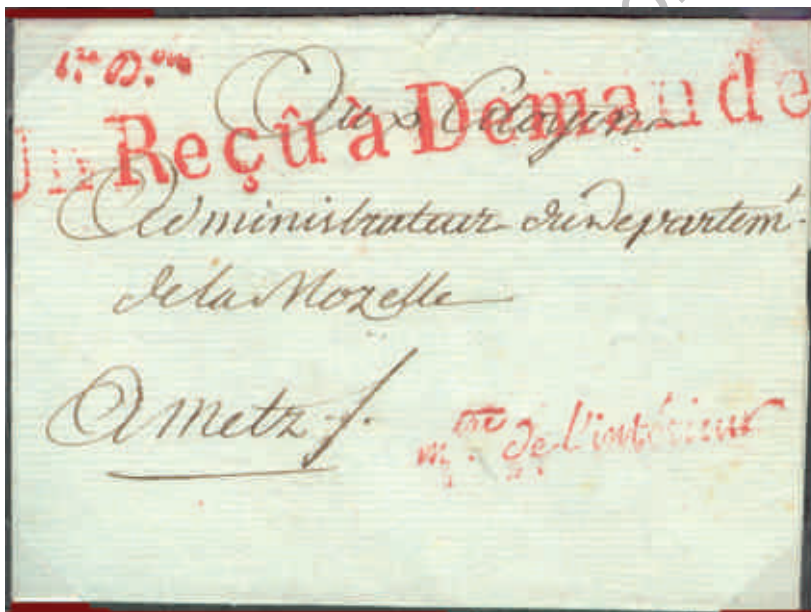 6.me D.on
Un Reçû à Demande
Aux Citoyens
Administrateur du Departem.t
de la Mozelle
A Metz
m.tre de l'intérieur